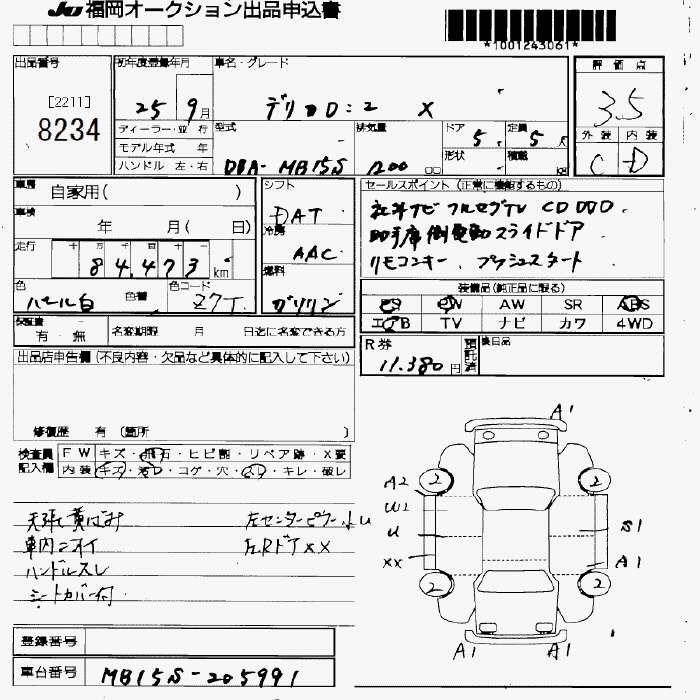 JU 福岡オークション出品申込書
*1001243061*
出品番号 初年度登録年月 車名・グレード 評価点
[2211]
8234
25 9月 デリカD:2 X 3.5
ディーラー・並行 型式 排気量 ドア 定員 外装 内装
モデル年式 年 5 5人 C D
ハンドル 左・右 DBA-MB15S 1200 cc 形状 積載 kg
車歴 自家用( ) シフト セールスポイント (正常に機能するもの)
車検 年 月( 日) DAT 社外ナビ フルセグTV CD DVD.
走行 84,473 km 冷房 AAC 助手席側電動スライドドア
燃料 ガソリン リモコンキー、プッシュスタート
色 パール白 色替 色コード Z7T 装備品(純正品に限る)
PS PW AW SR ABS
エアB TV ナビ カワ 4WD
保証書 有・無 名変期限 月 日迄に名変できる方
R券 11,380円 預託済 後日品
出品店申告欄(不良内容・欠品など具体的に記入して下さい)
修復歴 有 (箇所 )
検査員記入欄 FW キズ・飛石・ヒビ割・リペア跡・X要
内装 キズ・汚レ・コゲ・穴・スレ・キレ・破レ
天張り黄ばみ 左センターピラー小U
車内ニオイ 左RドアXX
ハンドルスレ
シートカバー付
A1
A2 2 2
W2
U S1
XX A1
2 2
A1 A1
登録番号
車台番号 MB15S-205991